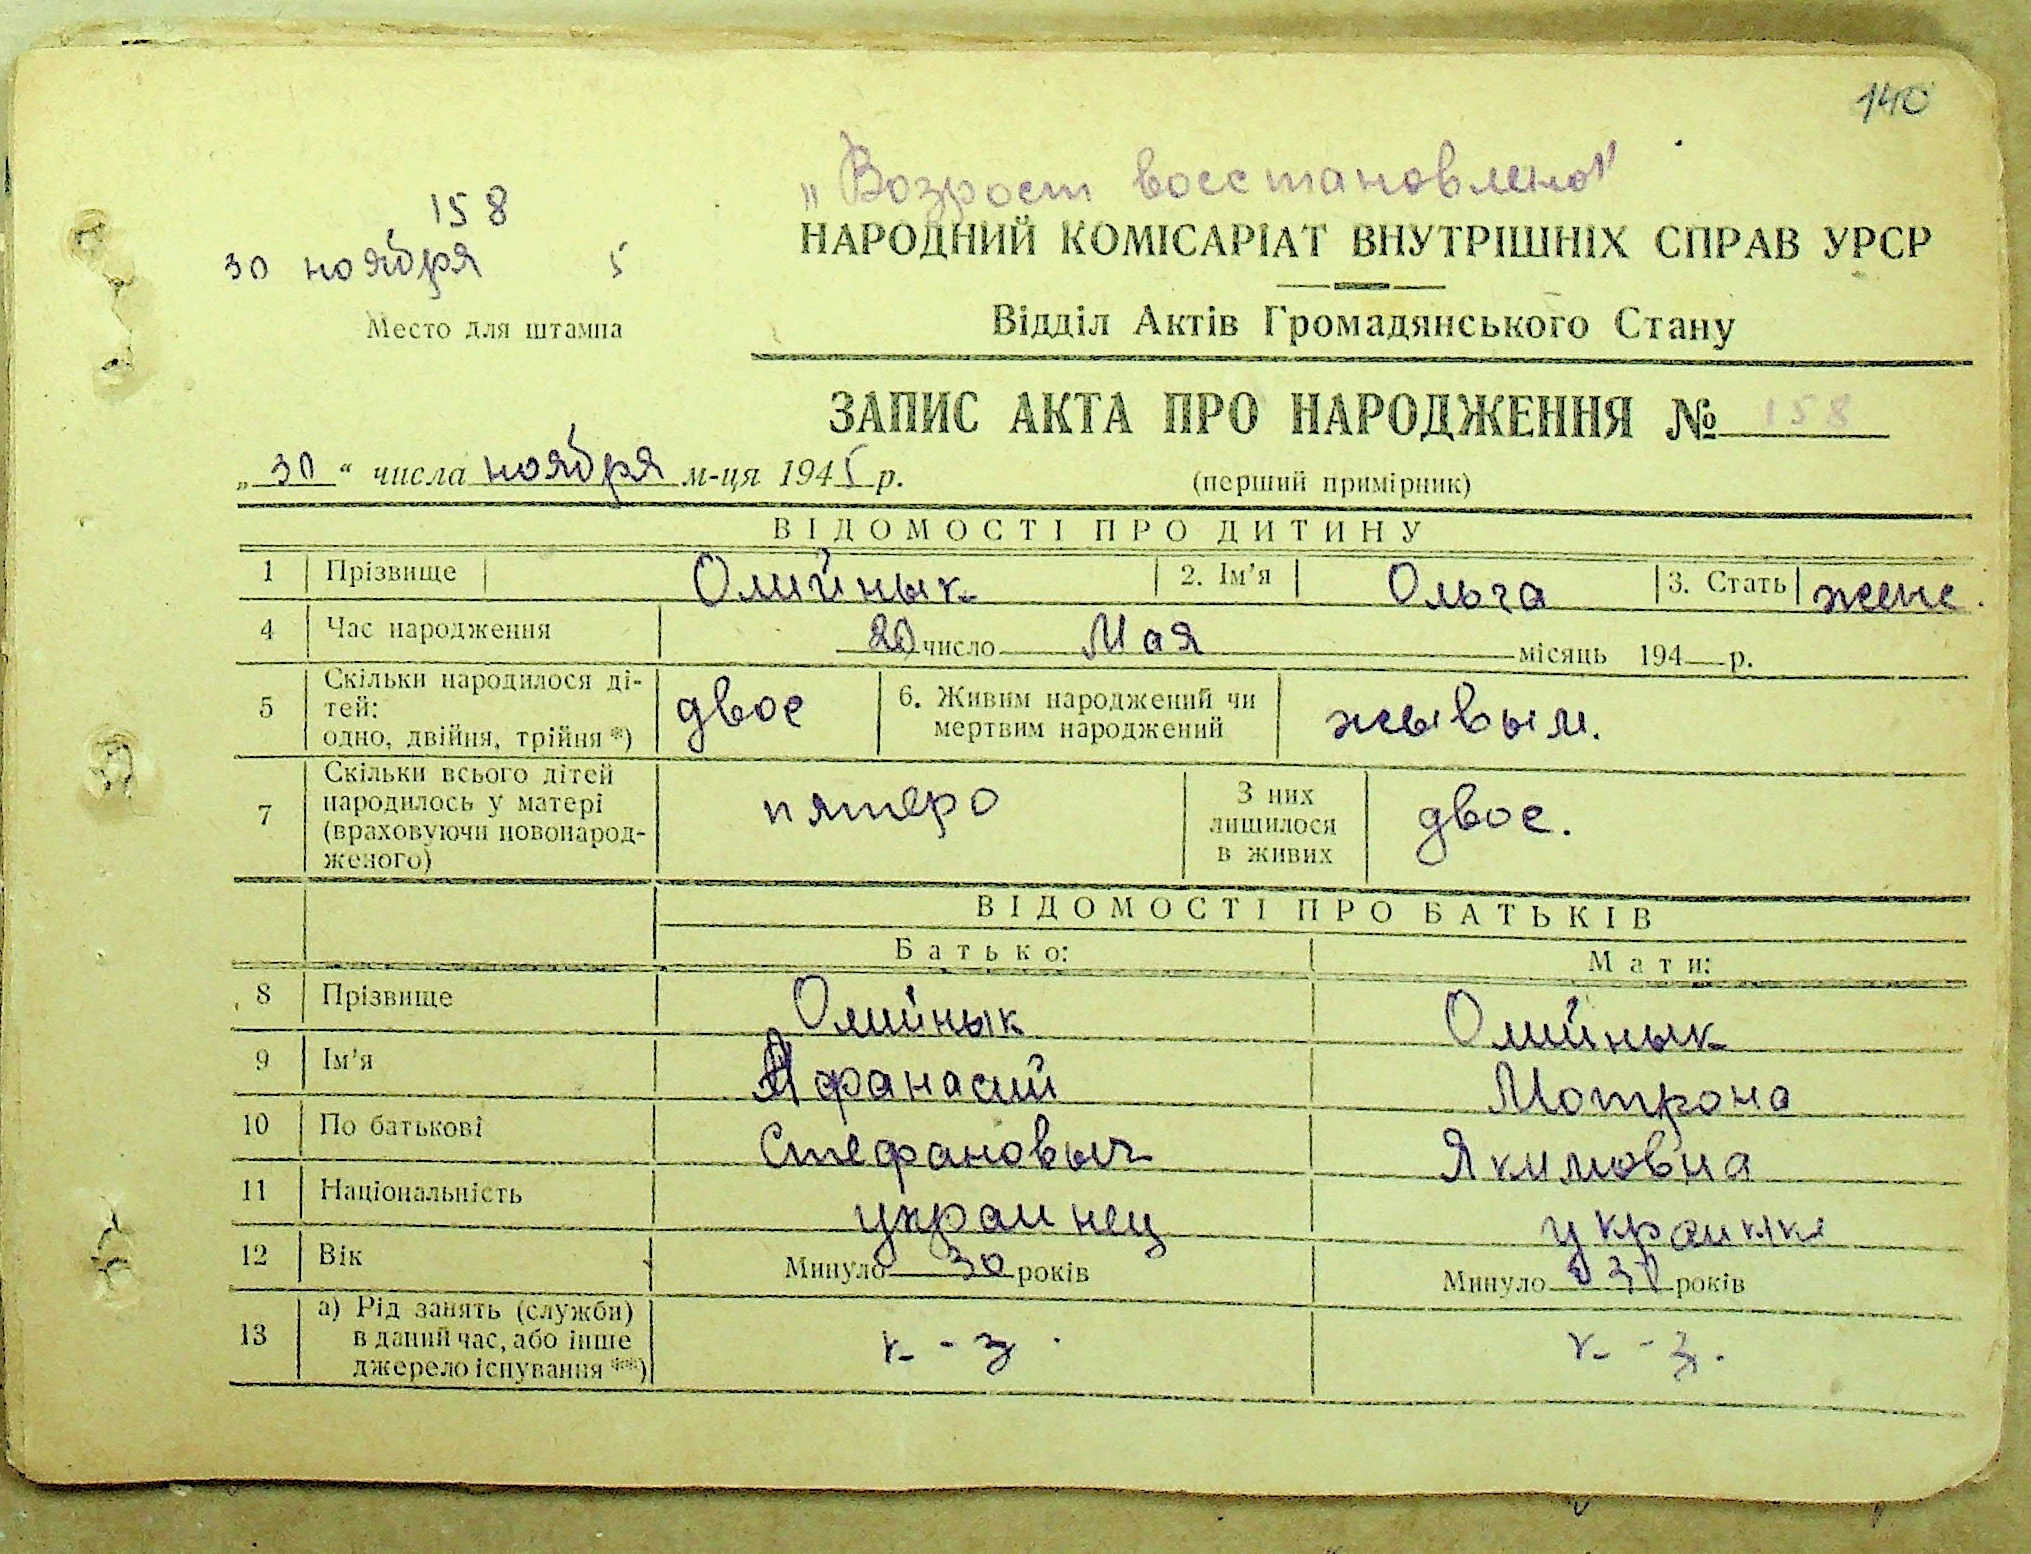 140
„Возрост восстановлено"
158
30 ноября 5
Место для штампа
НАРОДНИЙ КОМІСАРІАТ ВНУТРІШНІХ СПРАВ УРСР
Відділ Актів Громадянського Стану
ЗАПИС АКТА ПРО НАРОДЖЕННЯ № 158
„30“ числа ноября м-ця 1945 р.
(перший примірник)
ВІДОМОСТІ ПРО ДИТИНУ
1 Прізвище Олийнык 2. Ім'я Ольга 3. Стать женс.
4 Час народження 20 число Мая місяць 194 р.
5 Скільки народилося ді-
тей:
одно, двійня, трійня *) двое 6. Живим народжений чи
мертвим народжений жывым.
7 Скільки всього дітей
народилось у матері
(враховуючи новонарод-
женого) пятеро З них
лишилося
в живих двое.
ВІДОМОСТІ ПРО БАТЬКІВ
Батько: Мати:
8 Прізвище Олийнык Олийнык
9 Ім'я Афанасий Мотрона
10 По батькові Стефановыч Якимовна
11 Національність украинец
12 Вік Минуло 30 років Минуло років
13 а) Рід занять (служби)
в даний час, або інше
джерело існування **) к-з. к-з.